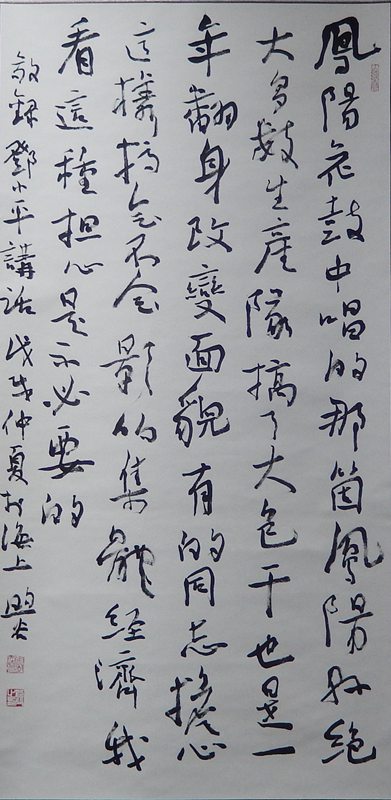 鳳陽花鼓中唱的那箇鳳陽縣絕
大多數生產隊搞了大包干也是一
年翻身改變面貌有的同志擔心
這樣搞會不會影响集體經濟我
看這種担心是不必要的
敬錄鄧小平講話戊戌仲夏於海上